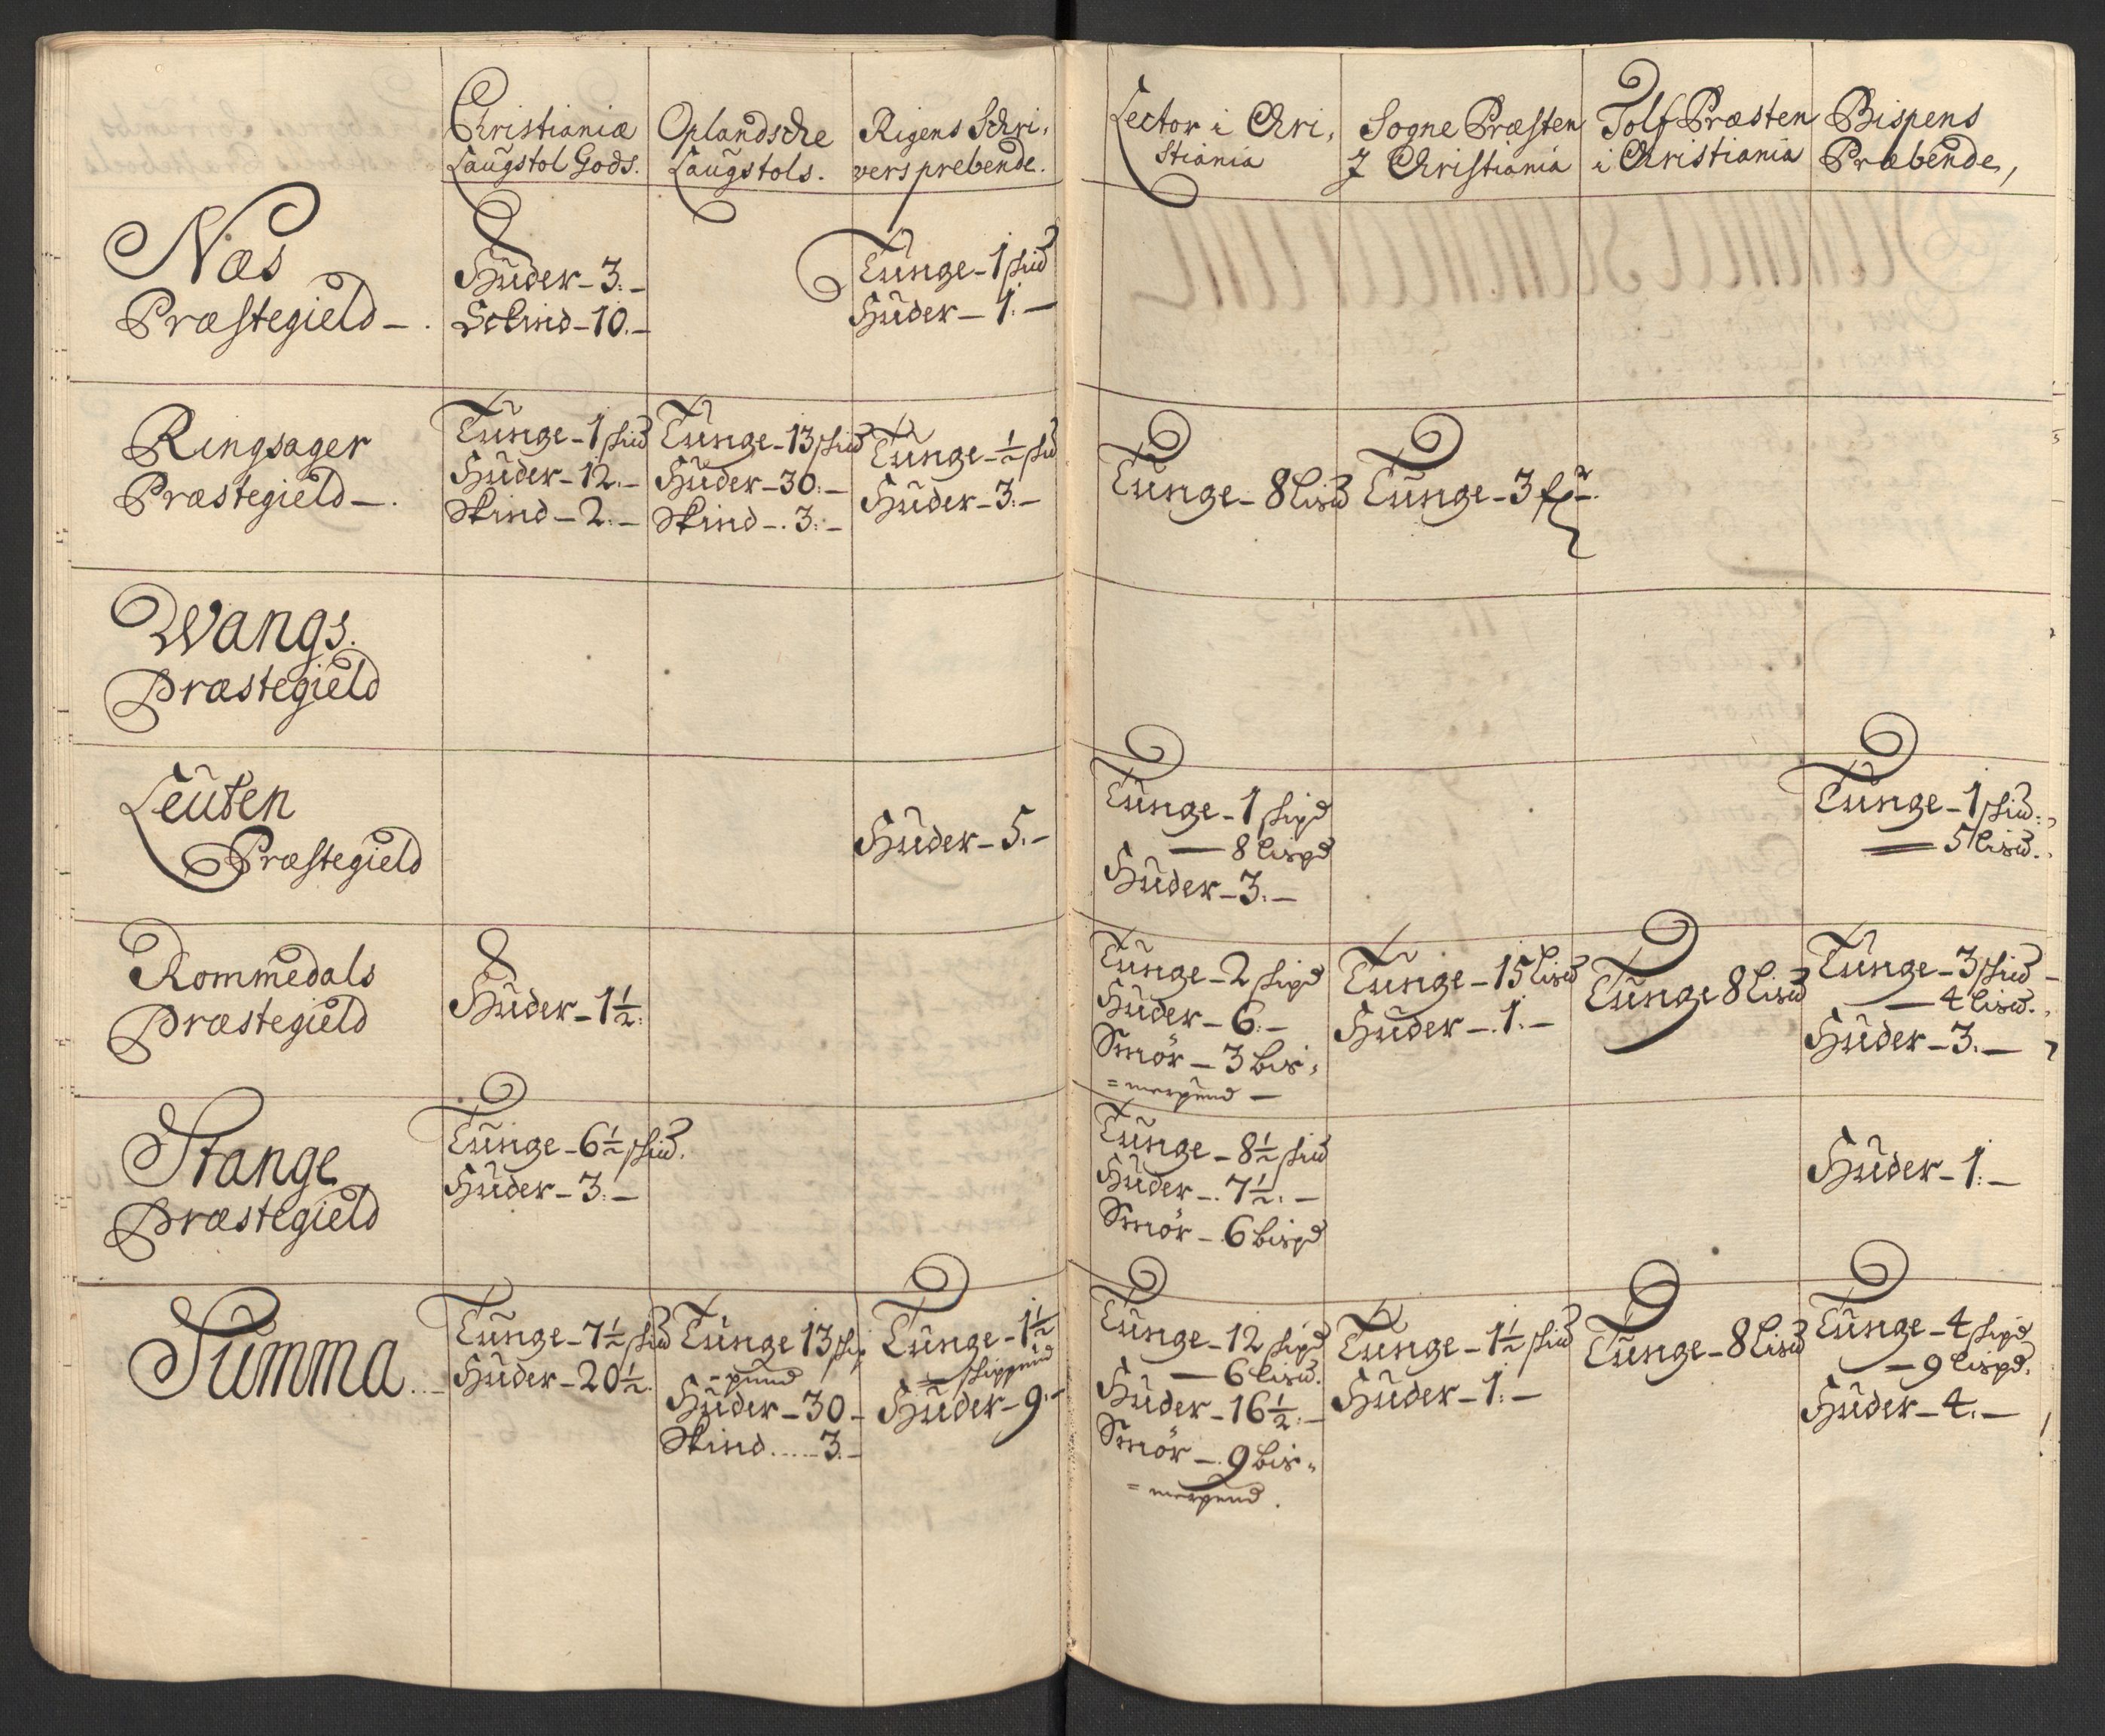 Christiania
Laugstol Gods.
Oplandsche
Laugstols.
Rigens Schri,
vers prebende.
Lector i Chri,
stiania
Sogne Præsten
J Christiania
Tolf Præsten
i Christiania
Bispens
Præbende,
Næs
Præstegield
Huder - 3.
Schind - 10.
Tunge - 1 skud
Huder - 1.
Ringsager
Præstegield
Tunge - 1 skud
Huder - 12.
Skind - 2.
Tunge - 13 skud
Huder - 30.
Skind - 3.
Tunge - ½ skud
Huder - 3.
Tunge - 8 lisud
Tunge - 3
Wangs.
Præstegield
Leuten
Præstegield
Huder - 5.
Tunge - 1 skpd
8 lispd
Huder - 3.
Tunge - 1 skud.
5 lisud.
Rommedals
Præstegield
Huder - 1½.
Tunge - 2 skpd
Huder - 6.
Smör - 3 bis,
=merpund
Tunge - 15 lisud
Huder - 1.
Tunge 8 lisud
Tunge - 3 skud
4 lisud.
Huder - 3.
Stange
Præstegield
Tunge - 6½ skud.
Huder - 3.
Tunge - 8½ skud
Huder - 7½.
Smör - 6 bispd
Huder - 1.
Summa
Tunge - 7½ skud
Huder - 20½.
Tunge 13 skip
-pund
Huder - 30
Skind ..... 3.
Tunge - 1½
skippund
Huder - 9.
Tunge - 12 skpd
6 lisud.
Huder - 16½.
Smör - 9 bis,
=merpund.
Tunge - 1½ skud
Huder - 1.
Tunge - 8 lisud
Tunge - 4 skpd
9 lispd.
Huder - 4.